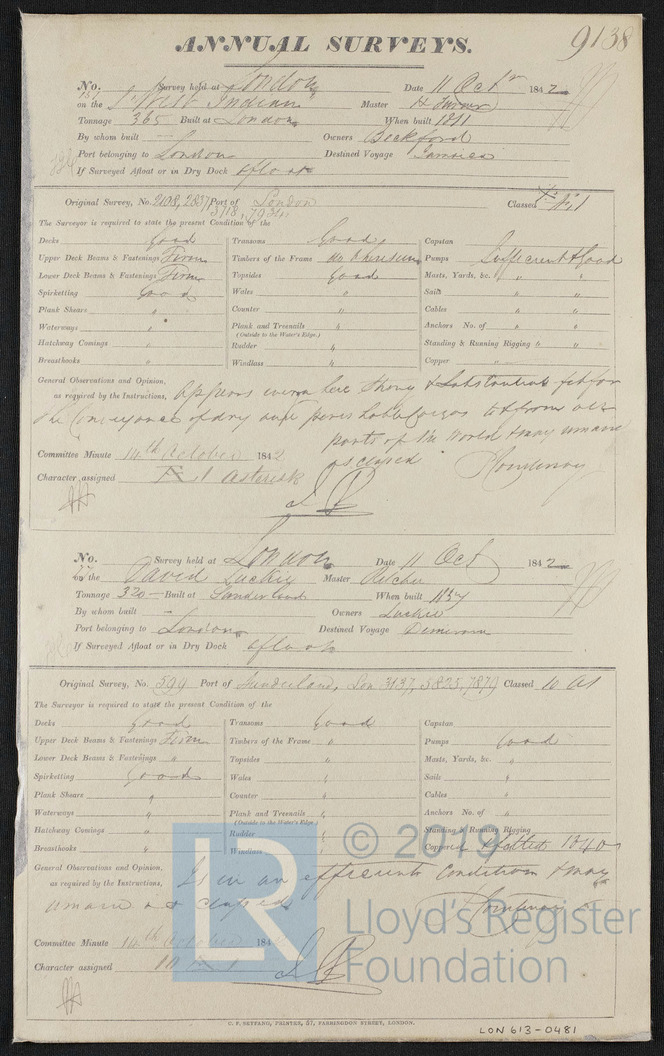 9138
ANNUAL SURVEYS.
No. Survey held at London Date 11 Octr 1842
on the S. West Indian Master
Tonnage 365 Built at London When built 1811
By whom built — Owners Beckford
Port belonging to London Destined Voyage Jamaica
If Surveyed Afloat or in Dry Dock afloat
Original Survey, No. 2108, 2837 Port of London Classed
3718,
The Surveyor is required to state the present Condition of the
Decks Good Transoms Good Capstan
Upper Deck Beams & Fastenings Firm Timbers of the Frame Pumps Sufficient & Good
Lower Deck Beams & Fastenings Firm Topsides Good Masts, Yards, &c. " "
Spirketting Good Wales " Sails " "
Plank Shears " Counter " Cables " "
Waterways " Plank and Treenails " Anchors No. of " "
(Outside to the Water's Edge.)
Hatchway Comings " Rudder " Standing & Running Rigging " "
Breasthooks " Windlass " Copper "
General Observations and Opinion,
as required by the Instructions, Appears strong & Substantial fit for
the Conveyance of dry and perishable Cargoes to & from all
parts of the World & may remain
as classed
Committee Minute 14th October 1842
Character assigned Æ 1 asterisk
No. Survey held at London Date 11 Oct 1842
on the David Luckie Master Ritchie
Tonnage 320 Built at Sunderland When built
By whom built — Owners Luckie
Port belonging to London Destined Voyage Demerara
If Surveyed Afloat or in Dry Dock afloat
Original Survey, No. 594 Port of Sunderland, Lon 3137, 5825, 7879 Classed 10 A1
The Surveyor is required to state the present Condition of the
Decks Good Transoms Good Capstan
Upper Deck Beams & Fastenings Firm Timbers of the Frame " Pumps Good
Lower Deck Beams & Fastenings " Topsides " Masts, Yards, &c. "
Spirketting Good Wales " Sails "
Plank Shears " Counter " Cables "
Waterways " Plank and Treenails " Anchors No. of "
(Outside to the Water's Edge.)
Hatchway Comings " Rudder " Standing & Running Rigging
Breasthooks " Windlass " Coppered & felted 1840
General Observations and Opinion,
as required by the Instructions, Is in an efficient Condition & may
remain as classed
Committee Minute 14th October 184
Character assigned 10 A 1
LR
© 2019
Lloyd's Register
Foundation
C. F. SEYFANG, PRINTER, 57, FARRINGDON STREET, LONDON.
LON 613-0481